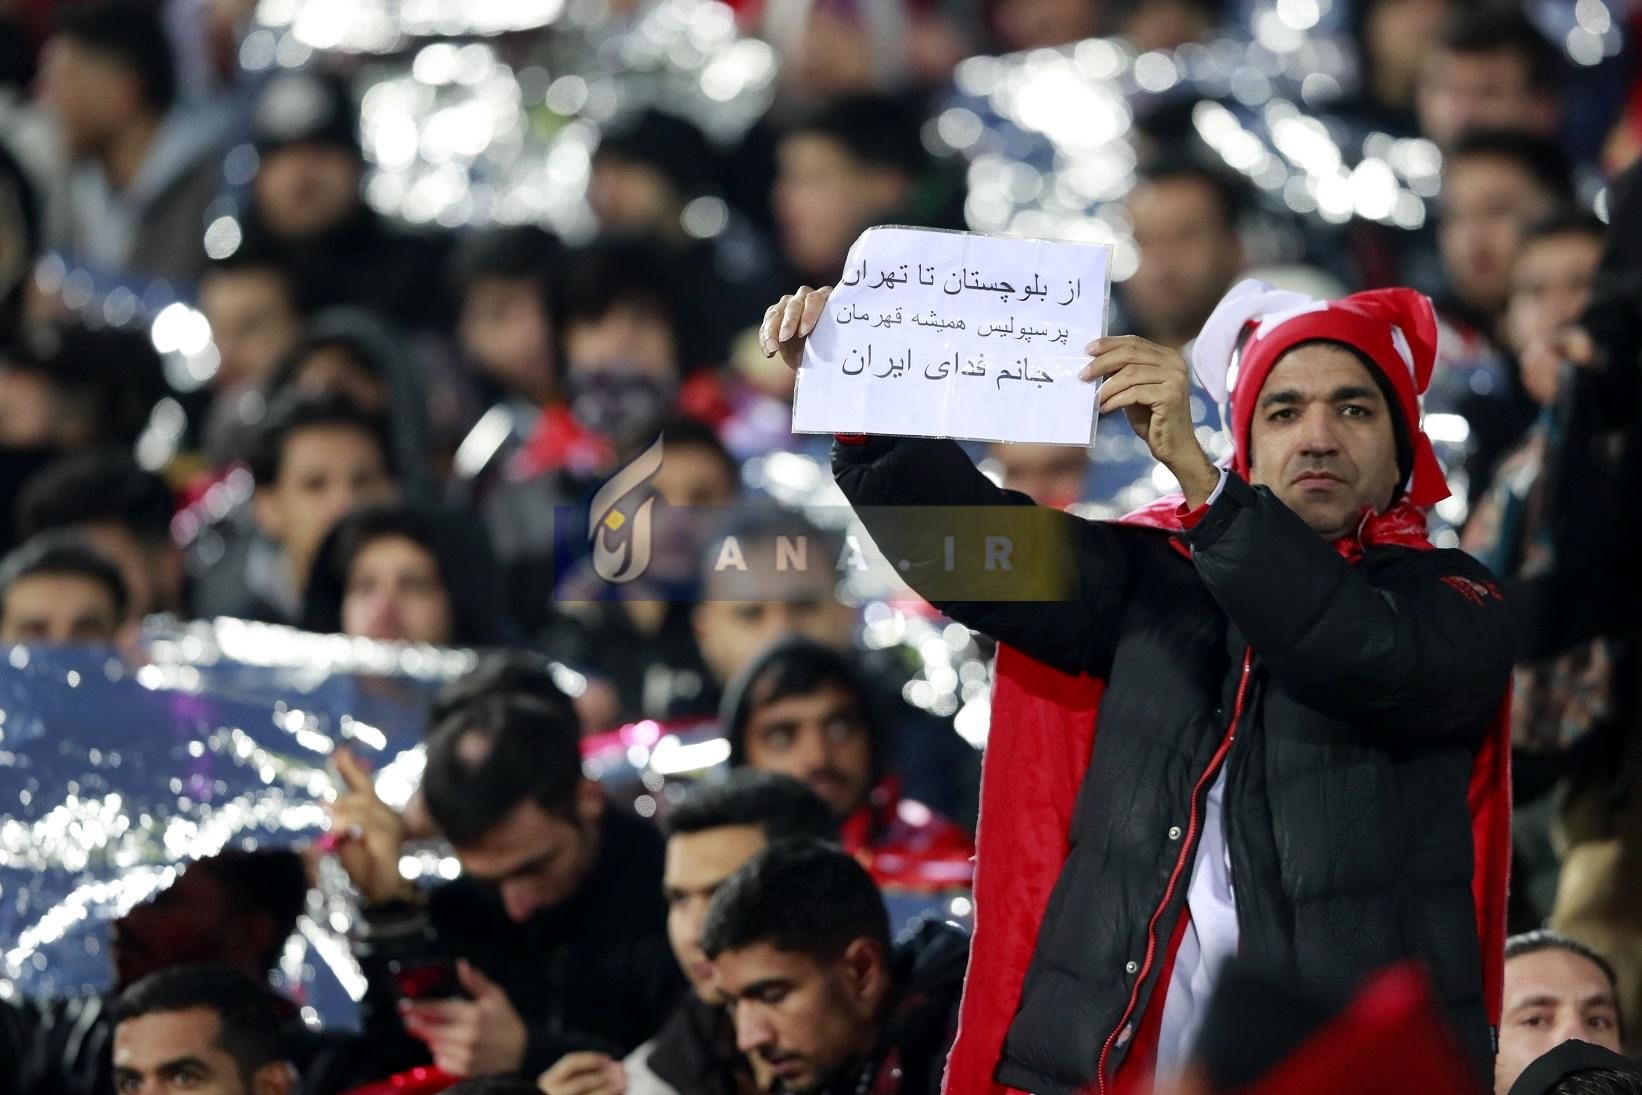 از بلوچستان تا تهران
پرسپولیس همیشه قهرمان
جانم فدای ایران
آنا
ANA.IR